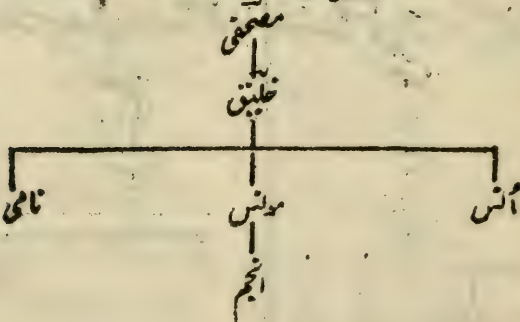 مصحفی
خلیق
اُنس مونس نامی
انجم